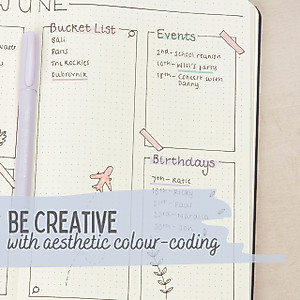 JUNE
Bucket List
Bali
Paris
The Rockies
Dubrovnik
Events
2nd - School reunion
10th - Will's party
18th - Concert with Danny
Birthdays
7th - Katie
BE CREATIVE
with aesthetic colour-coding